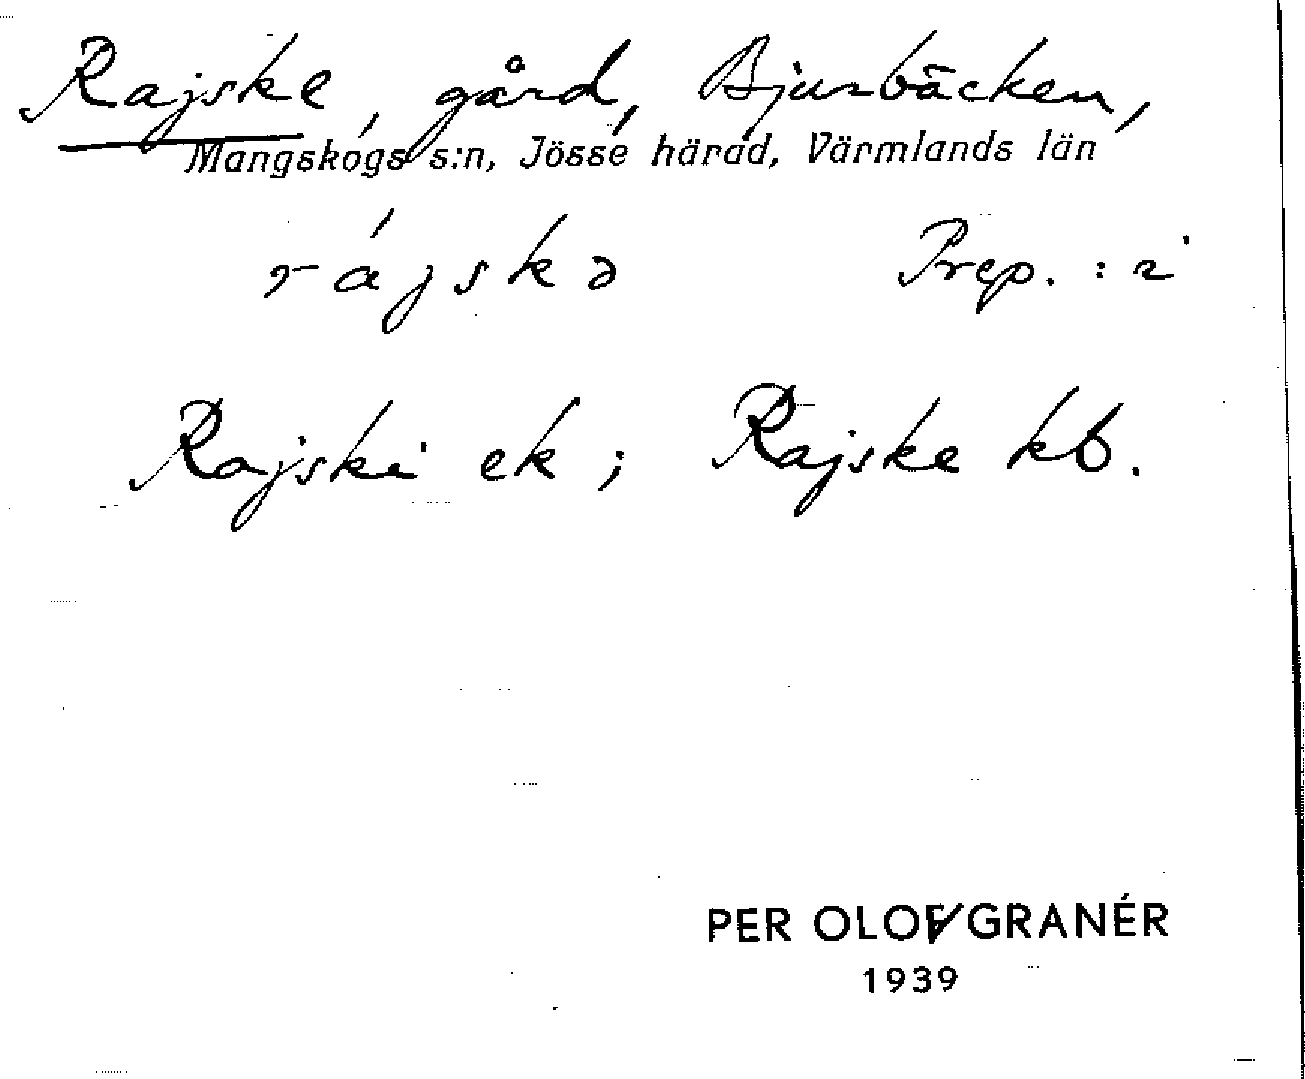 Rajske, gård, Bjurbäcken,
Mangskogs s:n, Jösse härad, Värmlands län
rájskə Prep. : i
Rajski ek ; Rajske kb.
PER OLOF GRANÉR
1939